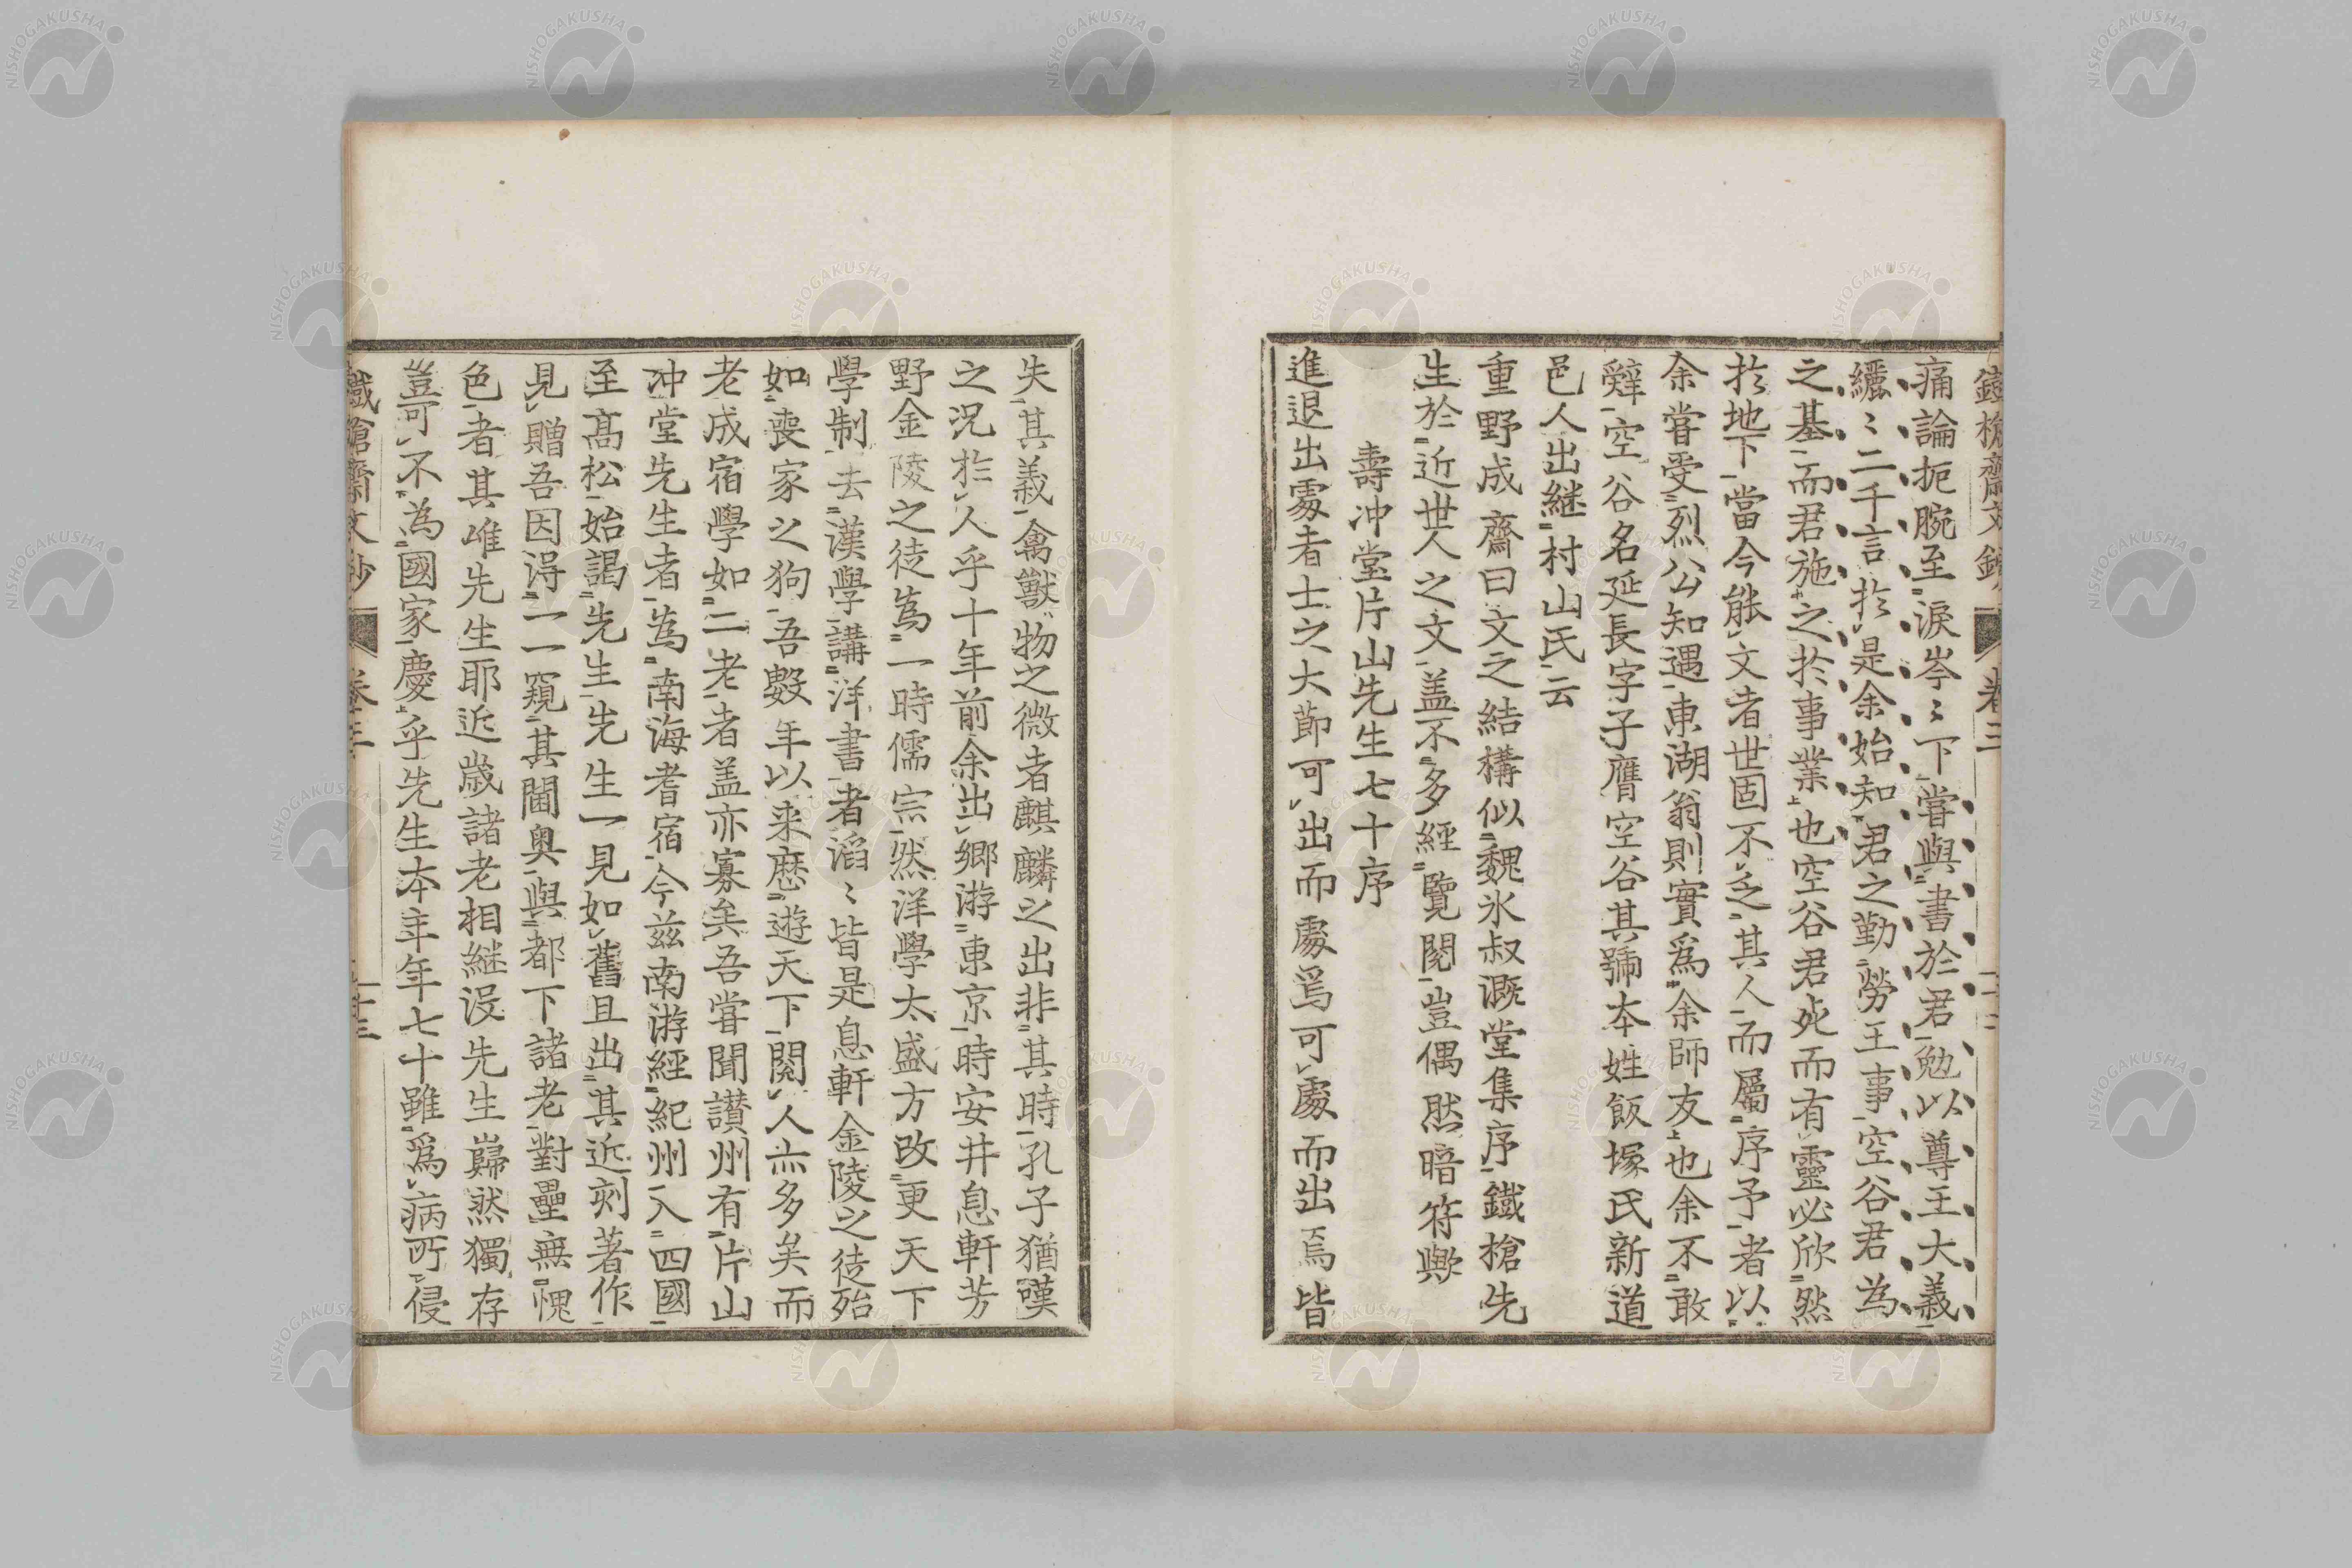 鐵槍齋文鈔 卷三
痛論扼腕至淚岑〻下嘗與書於君勉以尊王大義
纚〻二千言於是余始知君之勤勞王事空谷君為
之基而君施之於事業也空谷君死而有靈必欣然
於地下當今能文者世固不乏其人而屬序予者以
余嘗受烈公知遇東湖翁則實爲余師友也余不敢
辭空谷名延長字子膺空谷其號本姓飯塚氏新道
邑人出継村山氏云
重野成齋曰文之結構似魏氷叔溉堂集序鐵槍先
生於近世人之文盖不多經覽閱豈偶然暗符歟
壽冲堂片山先生七十序
進退出處者士之大節可出而處焉可處而出焉皆
失其義禽獸物之微者麒麟之出非其時孔子猶嘆
之况於人乎十年前余出鄉游東京時安井息軒芳
野金陵之徒爲一時儒宗然洋學太盛方改更天下
學制去漢學講洋書者滔〻皆是息軒金陵之徒殆
如喪家之狗吾數年以来歴遊天下閱人亦多矣而
老成宿學如二老者盖亦寡矣吾嘗聞讃州有片山
冲堂先生者爲南海耆宿今兹南游經紀州入四國
至髙松始謁先生先生一見如舊且出其近刻著作
見贈吾因得一一窺其閫奥與都下諸老對壘無愧
色者其唯先生耶近歳諸老相継沒先生巋然獨存
豈可不為國家慶乎先生本年年七十雖爲病所侵
鐵槍齋文鈔 卷三